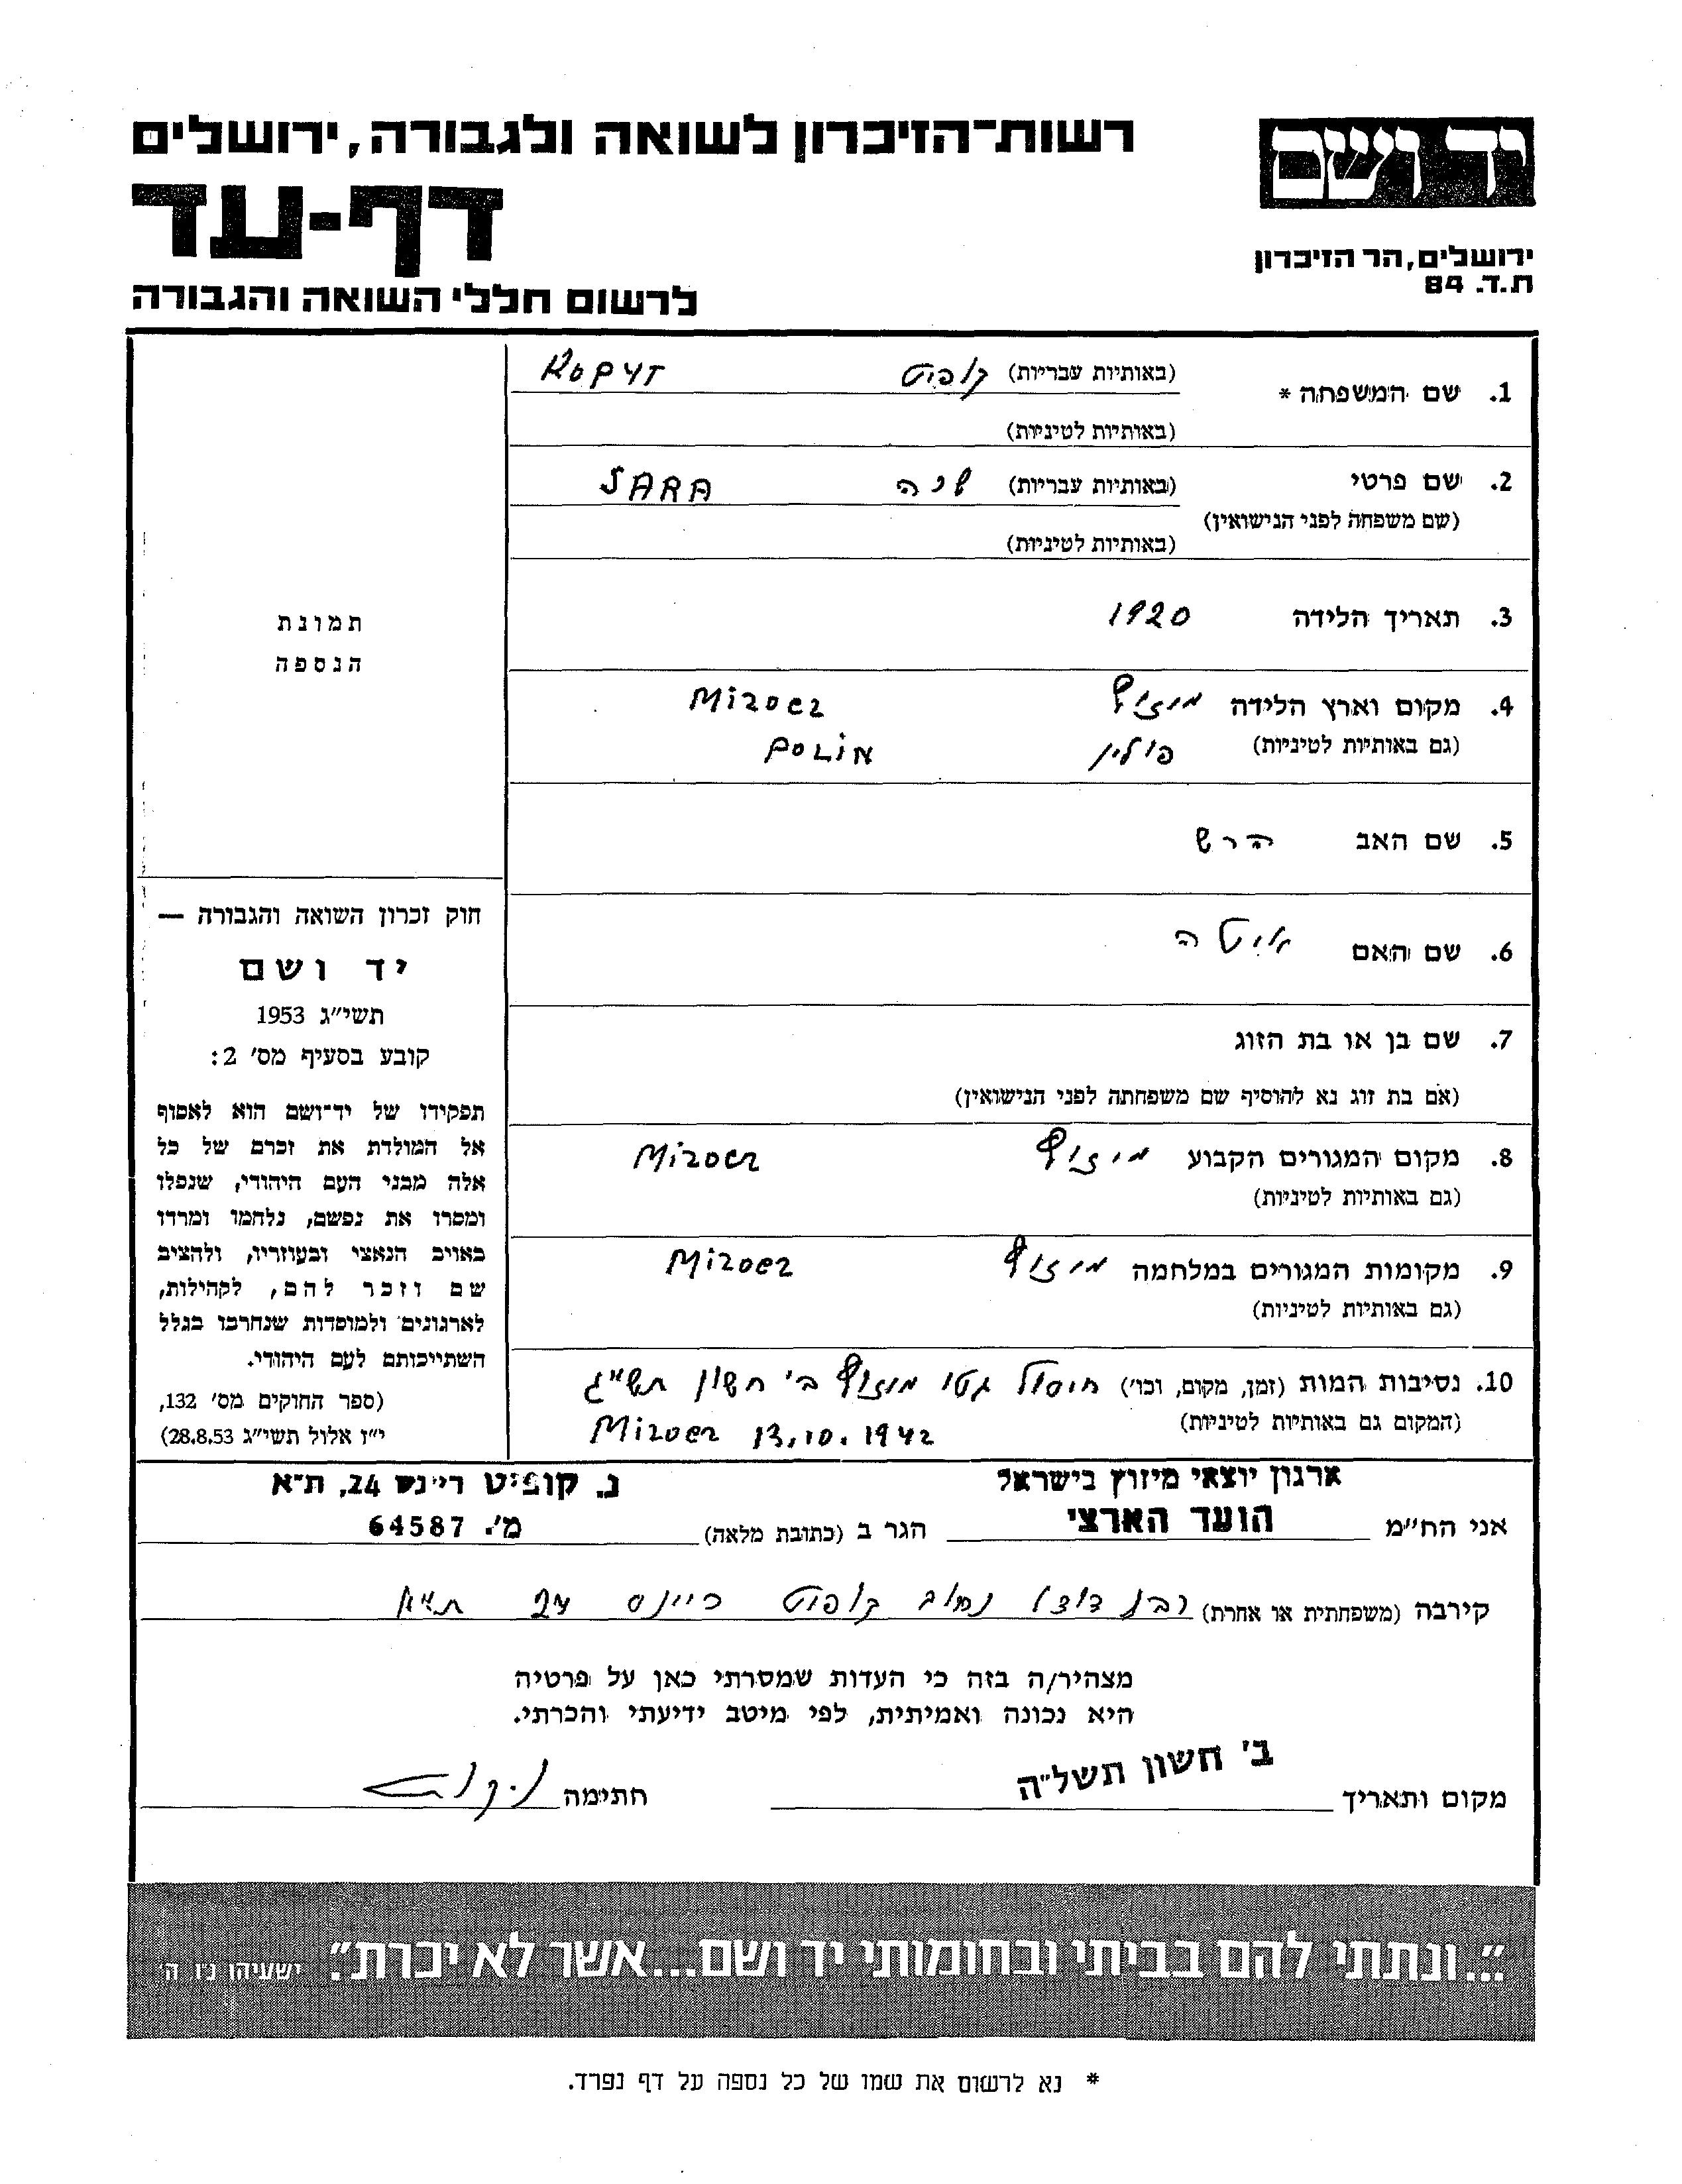 רשות־הזיכרון לשואה ולגבורה, ירושלים
דף-עד
לרשום חללי השואה והגבורה
יד ושם
ירושלים, הר הזיכרון
ת.ד. 84
1. שם המשפחה * (באותיות עבריות) קופיט KOPYT
(באותיות לטיניות)
2. שם פרטי (באותיות עבריות) שרה SARA
(שם משפחה לפני הנישואין)
(באותיות לטיניות)
3. תאריך הלידה 1920
4. מקום וארץ הלידה מיזוץ Mizoez
(גם באותיות לטיניות) פולין POLiN
5. שם האב הרש
6. שם האם איטה
7. שם בן או בת הזוג
(אם בת זוג נא להוסיף שם משפחתה לפני הנישואין)
8. מקום המגורים הקבוע מיזוץ Mizoez
(גם באותיות לטיניות)
9. מקומות המגורים במלחמה מיזוץ Mizoez
(גם באותיות לטיניות)
10. נסיבות המות (זמן, מקום, וכו') חיסול גטו מיזוץ ב' חשון תש"ג
(המקום גם באותיות לטיניות) Mizoez 13.10.1942
תמונת
הנספה
חוק זכרון השואה והגבורה —
יד ושם
תשי״ג 1953
קובע בסעיף מס׳ 2:
תפקידו של יד־ושם הוא לאסוף
אל המולדת את זכרם של כל
אלה מבני העם היהודי, שנפלו
ומסרו את נפשם, נלחמו ומרדו
באויב הנאצי ובעוזריו, ולהציב
שם וזכר להם, לקהילות,
לארגונים ולמוסדות שנחרבו בגלל
השתייכותם לעם היהודי.
(ספר החוקים מס׳ 132,
י״ז אלול תשי״ג 28.8.53)
ארגון יוצאי מיזוץ בישראל נ. קופיט ריינס 24, ת״א
אני הח״מ הועד הארצי הגר ב (כתובת מלאה) מ׳. 64587
קירבה (משפחתית או אחרת) בן דוד נחום קופיט ריינס 24 ת"א
מצהיר/ה בזה כי העדות שמסרתי כאן על פרטיה
היא נכונה ואמיתית, לפי מיטב ידיעתי והכרתי.
מקום ותאריך ב׳ חשון תשל״ה חתימה
"...ונתתי להם בביתי ובחומותי יד ושם...אשר לא יכרת". ישעיהו נ״ו ה׳
* נא לרשום את שמו של כל נספה על דף נפרד.